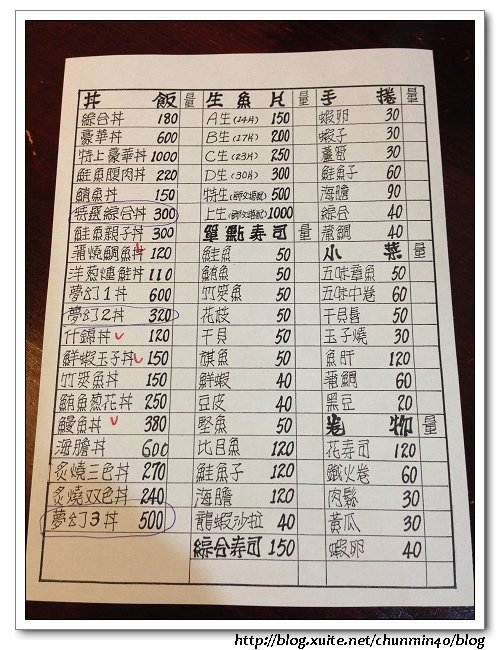 丼飯 量
綜合丼 180
豪華丼 600
特上豪華丼 1000
鮭魚腹肉丼 220
鮪魚丼 150
特選綜合丼 300
鮭魚親子丼 300
蒲燒鯛魚丼 120
洋蔥燻鮭丼 110
夢幻1丼 600
夢幻2丼 320
什錦丼 120
鮮蝦玉子丼 150
竹筴魚丼 150
鮪魚蔥花丼 250
鰻魚丼 380
海膽丼 600
炙燒三色丼 270
炙燒双色丼 240
夢幻3丼 500
生魚片 量
A生(14片) 150
B生(17片) 200
C生(23片) 250
D生(30片) 300
特生 500
上生 1000
單點壽司 量
鮭魚 50
鮪魚 50
竹筴魚 50
花枝 50
干貝 50
旗魚 50
鮮蝦 40
豆皮 40
堅魚 50
比目魚 120
鮭魚子 120
海膽 120
龍蝦沙拉 40
綜合壽司 150
手捲 量
蝦卵 30
蝦子 30
蘆筍 30
鮭魚子 60
海膽 90
綜合 40
蒲鯛 40
小菜 量
五味章魚 50
五味中卷 60
干貝唇 50
玉子燒 30
魚肝 120
蒲鯛 60
黑豆 20
卷物 量
花寿司 120
鐵火卷 60
肉鬆 30
黃瓜 30
蝦卵 40
http://blog.xuite.net/chunmin40/blog